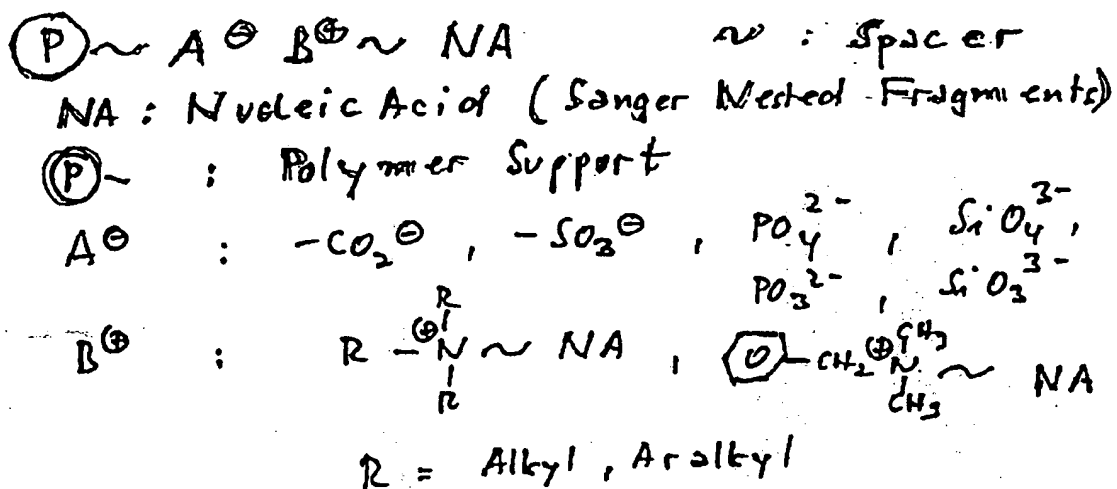 (P)~ A⊖ B⊕ ~ NA ~ : Spacer
NA : Nucleic Acid (Sanger Nested Fragments)
(P)~ : Polymer Support
A⊖ : -CO₂⊖ , -SO₃⊖ , PO₄²⁻ , SiO₄³⁻ ,
PO₃²⁻ , SiO₃³⁻
R
B⊕ : R -⊕N ~ NA , -CH₂⊕N ~ NA
R
CH₃
CH₃
R = Alkyl , Aralkyl